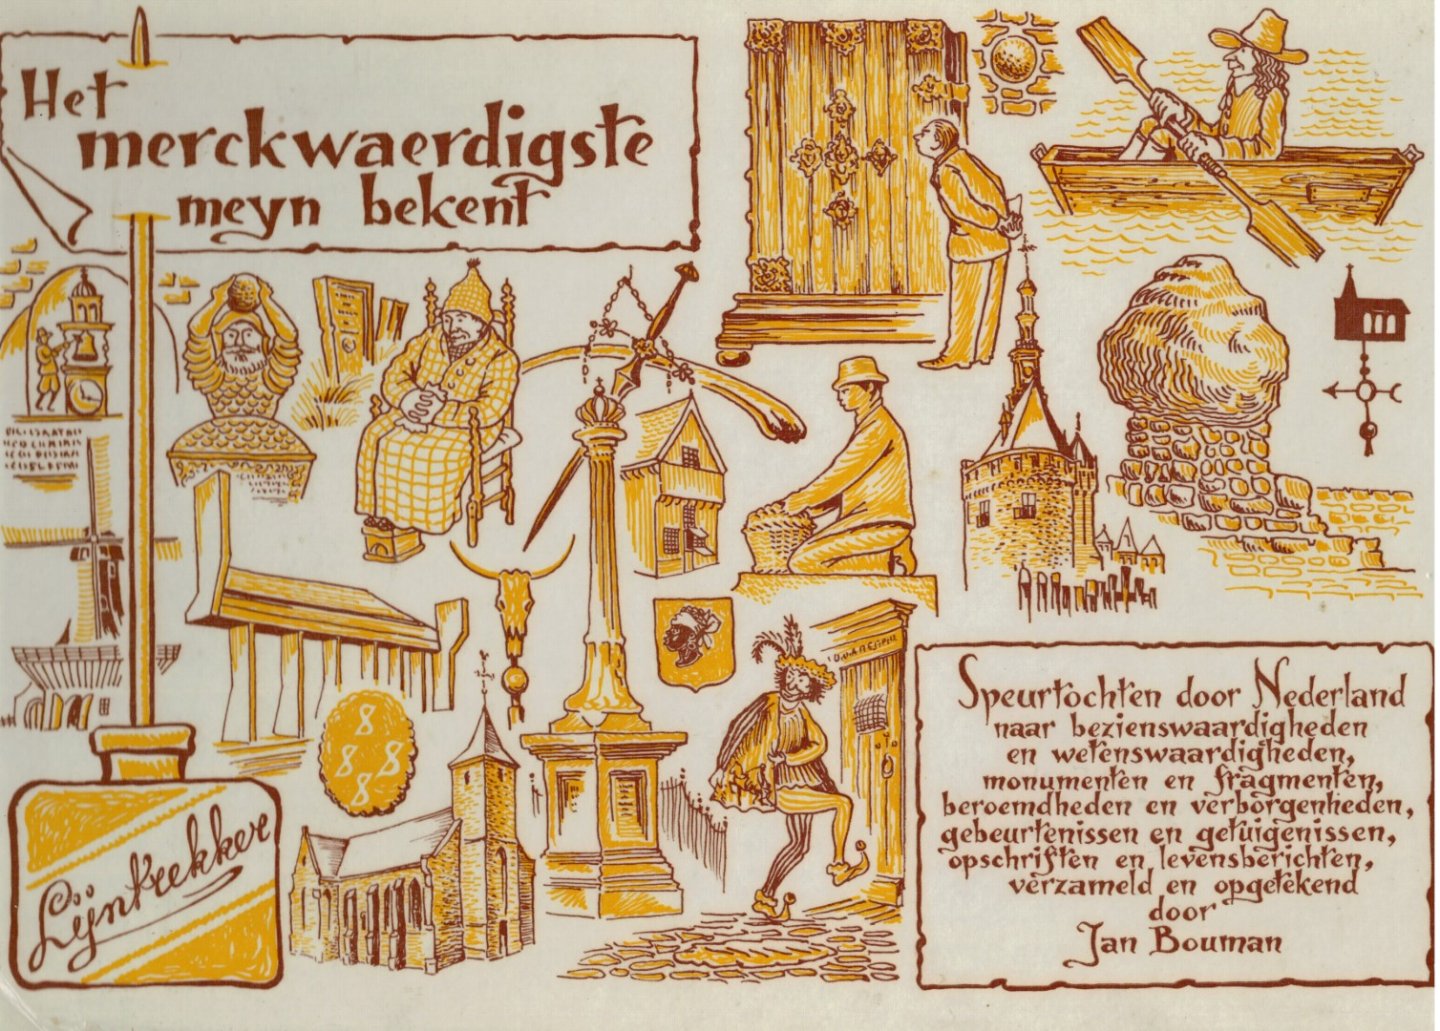 Het
merckwaerdigste
meyn bekent
8
8 8
8
Lijntrekker
Speurtochten door Nederland
naar bezienswaardigheden
en wetenswaardigheden,
monumenten en fragmenten,
beroemdheden en verborgenheden,
gebeurtenissen en getuigenissen,
opschriften en levensberichten,
verzameld en opgetekend
door
Jan Bouman